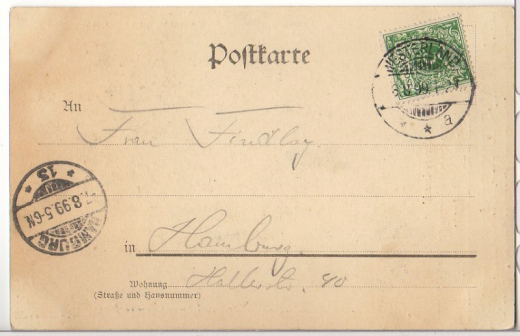 Postkarte
WESTERLAND
a
An
Frau Findlay
13
7.8.99.5-6N.
HAMBURG
in Hamburg.
Wohnung
(Straße und Hausnummer)
Hallerstr. 40